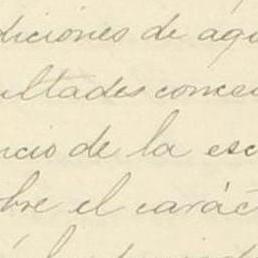 diciones de aqu
ultades conce
ncio de la esc
bre el carác